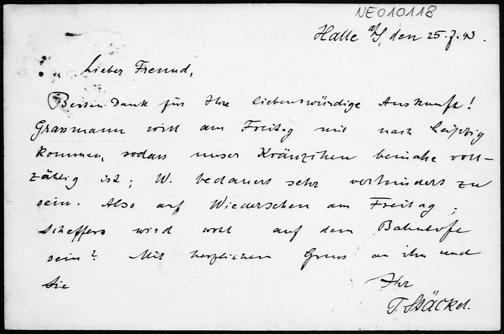 NEO10118
Halle a/S, den 25.7.93
Lieber Freund,
Besten Dank für Ihre liebenswürdige Auskunft!
Grassmann will am Freitag mit nach Leipzig
kommen, sodass unser Kränzchen beinahe voll-
zählig ist; W. bedauert sehr verhindert zu
sein. Also auf Wiedersehen am Freitag;
Scheffers wird wohl auf dem Bahnhofe
sein? Mit herzlichem Gruss an ihn und
Sie
Ihr
P. Stäckel.